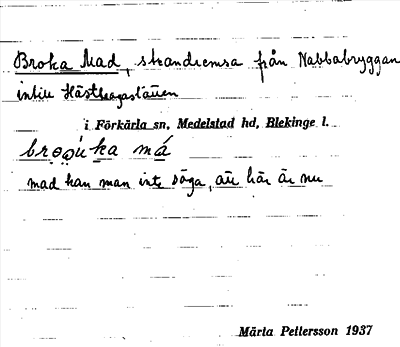 Broka Mad, strandremsa från Nabbabryggan
intill Hästhagastäuen
i Förkärla sn, Medelstad hd, Blekinge l.
mad kan man inte säga, att här är nu
Märta Pettersson 1937